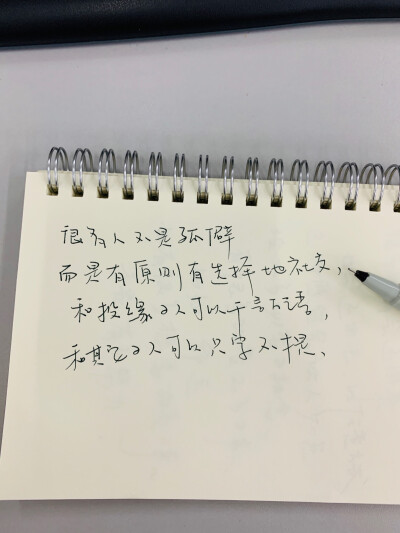 很多人不是孤僻
而是有原则有选择地社交,
和投缘的人可以千言万语,
和其它的人可以只字不提、